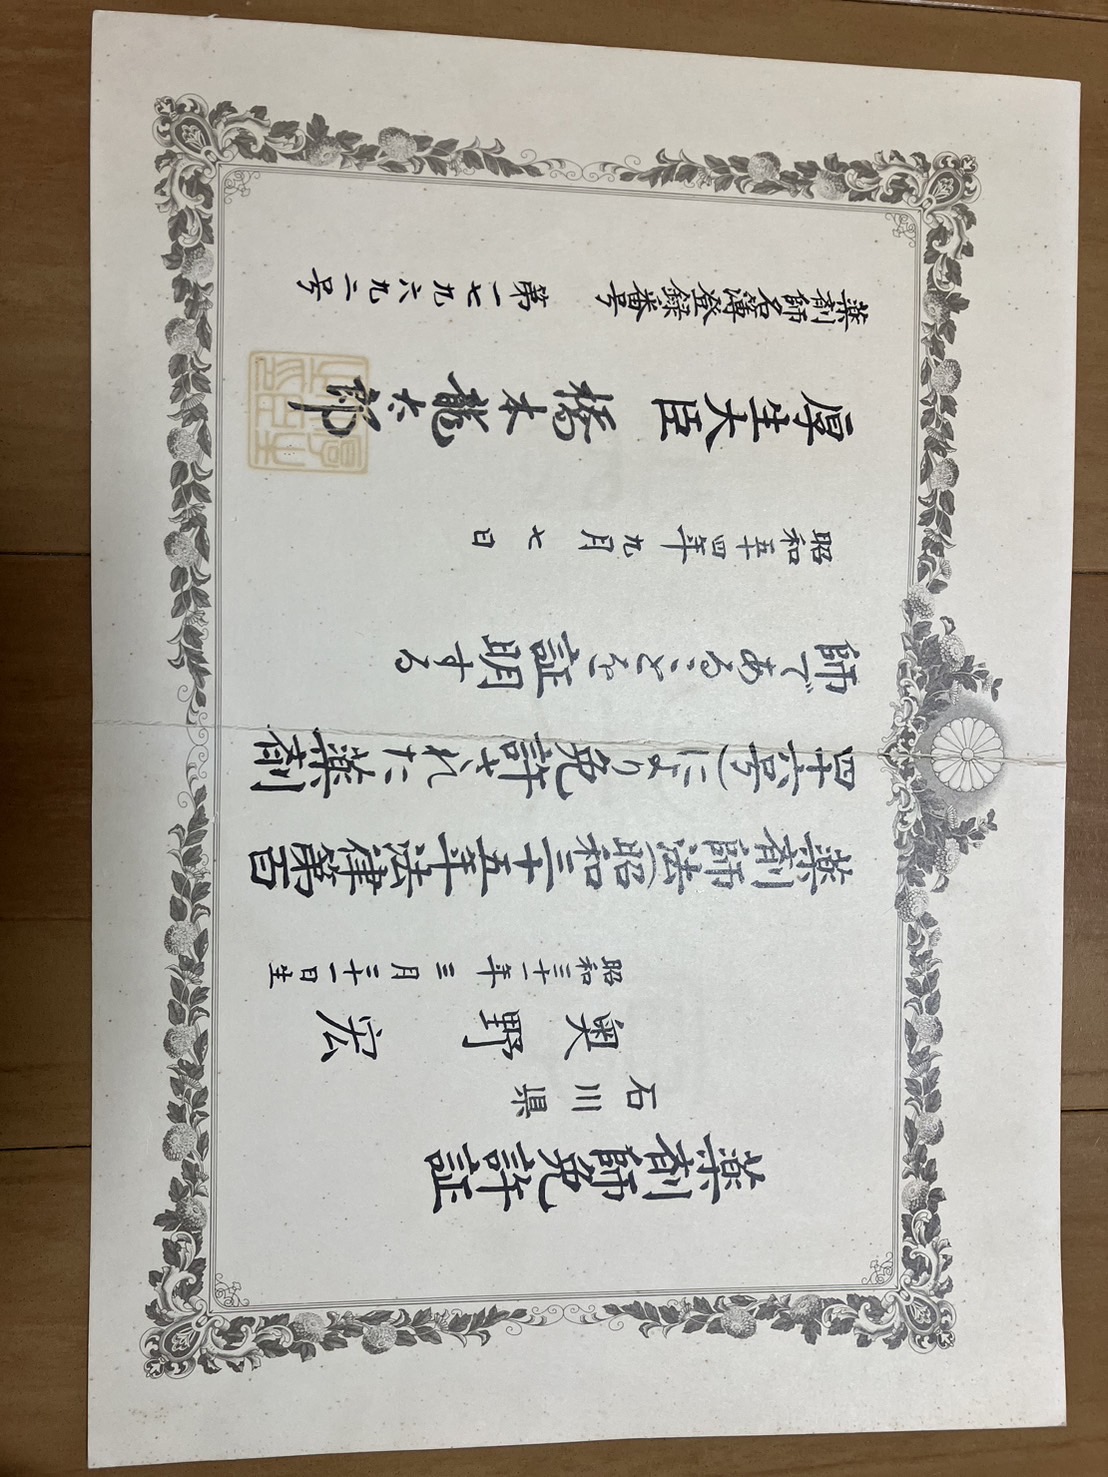 薬剤師免許証
石川県
奥野宏
昭和三十一年三月三十一日生
薬剤師法(昭和三十五年法律第百
四十六号)により免許された薬剤
師であることを証明する
昭和五十四年九月七日
厚生大臣 橋本龍太郎
薬剤師名簿登録番号 第一七九六九二号